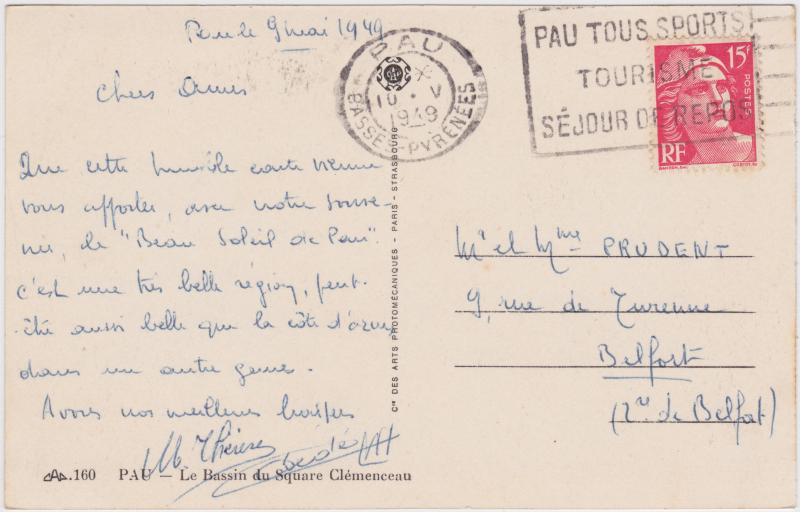 Pau le 9 mai 1949
Chers Amis
Que cette humble carte vienne
vous apporter, avec notre souve-
nir, le "Beau Soleil de Pau".
c'est une très belle région, peut-
être aussi belle que la côte d'azur,
dans un autre genre.
A vous nos meilleures
M. Thérèse
PAU
10 · V
1949
BASSES-PYRÉNÉES
PAU TOUS SPORTS
TOURISME
SÉJOUR DE REPOS
15F
POSTES
RF
GANDON
Mr et Mme PRUDENT
9, rue de Turenne
Belfort
(Tre de Belfort)
Cie DES ARTS PHOTOMÉCANIQUES - PARIS - STRASBOURG
.160 PAU — Le Bassin du Square Clémenceau